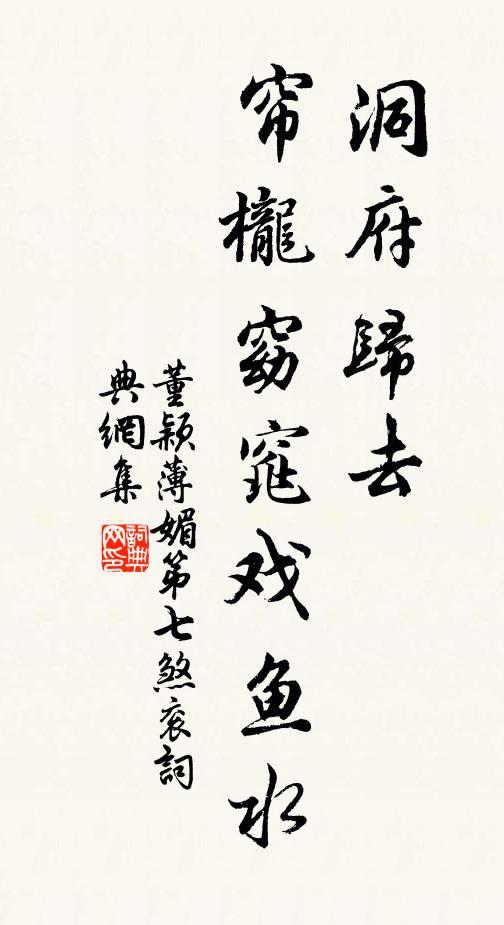 洞府歸去
帘櫳窈窕戏鱼水
董颖薄媚第七煞衮詞
典網集
詞典網印